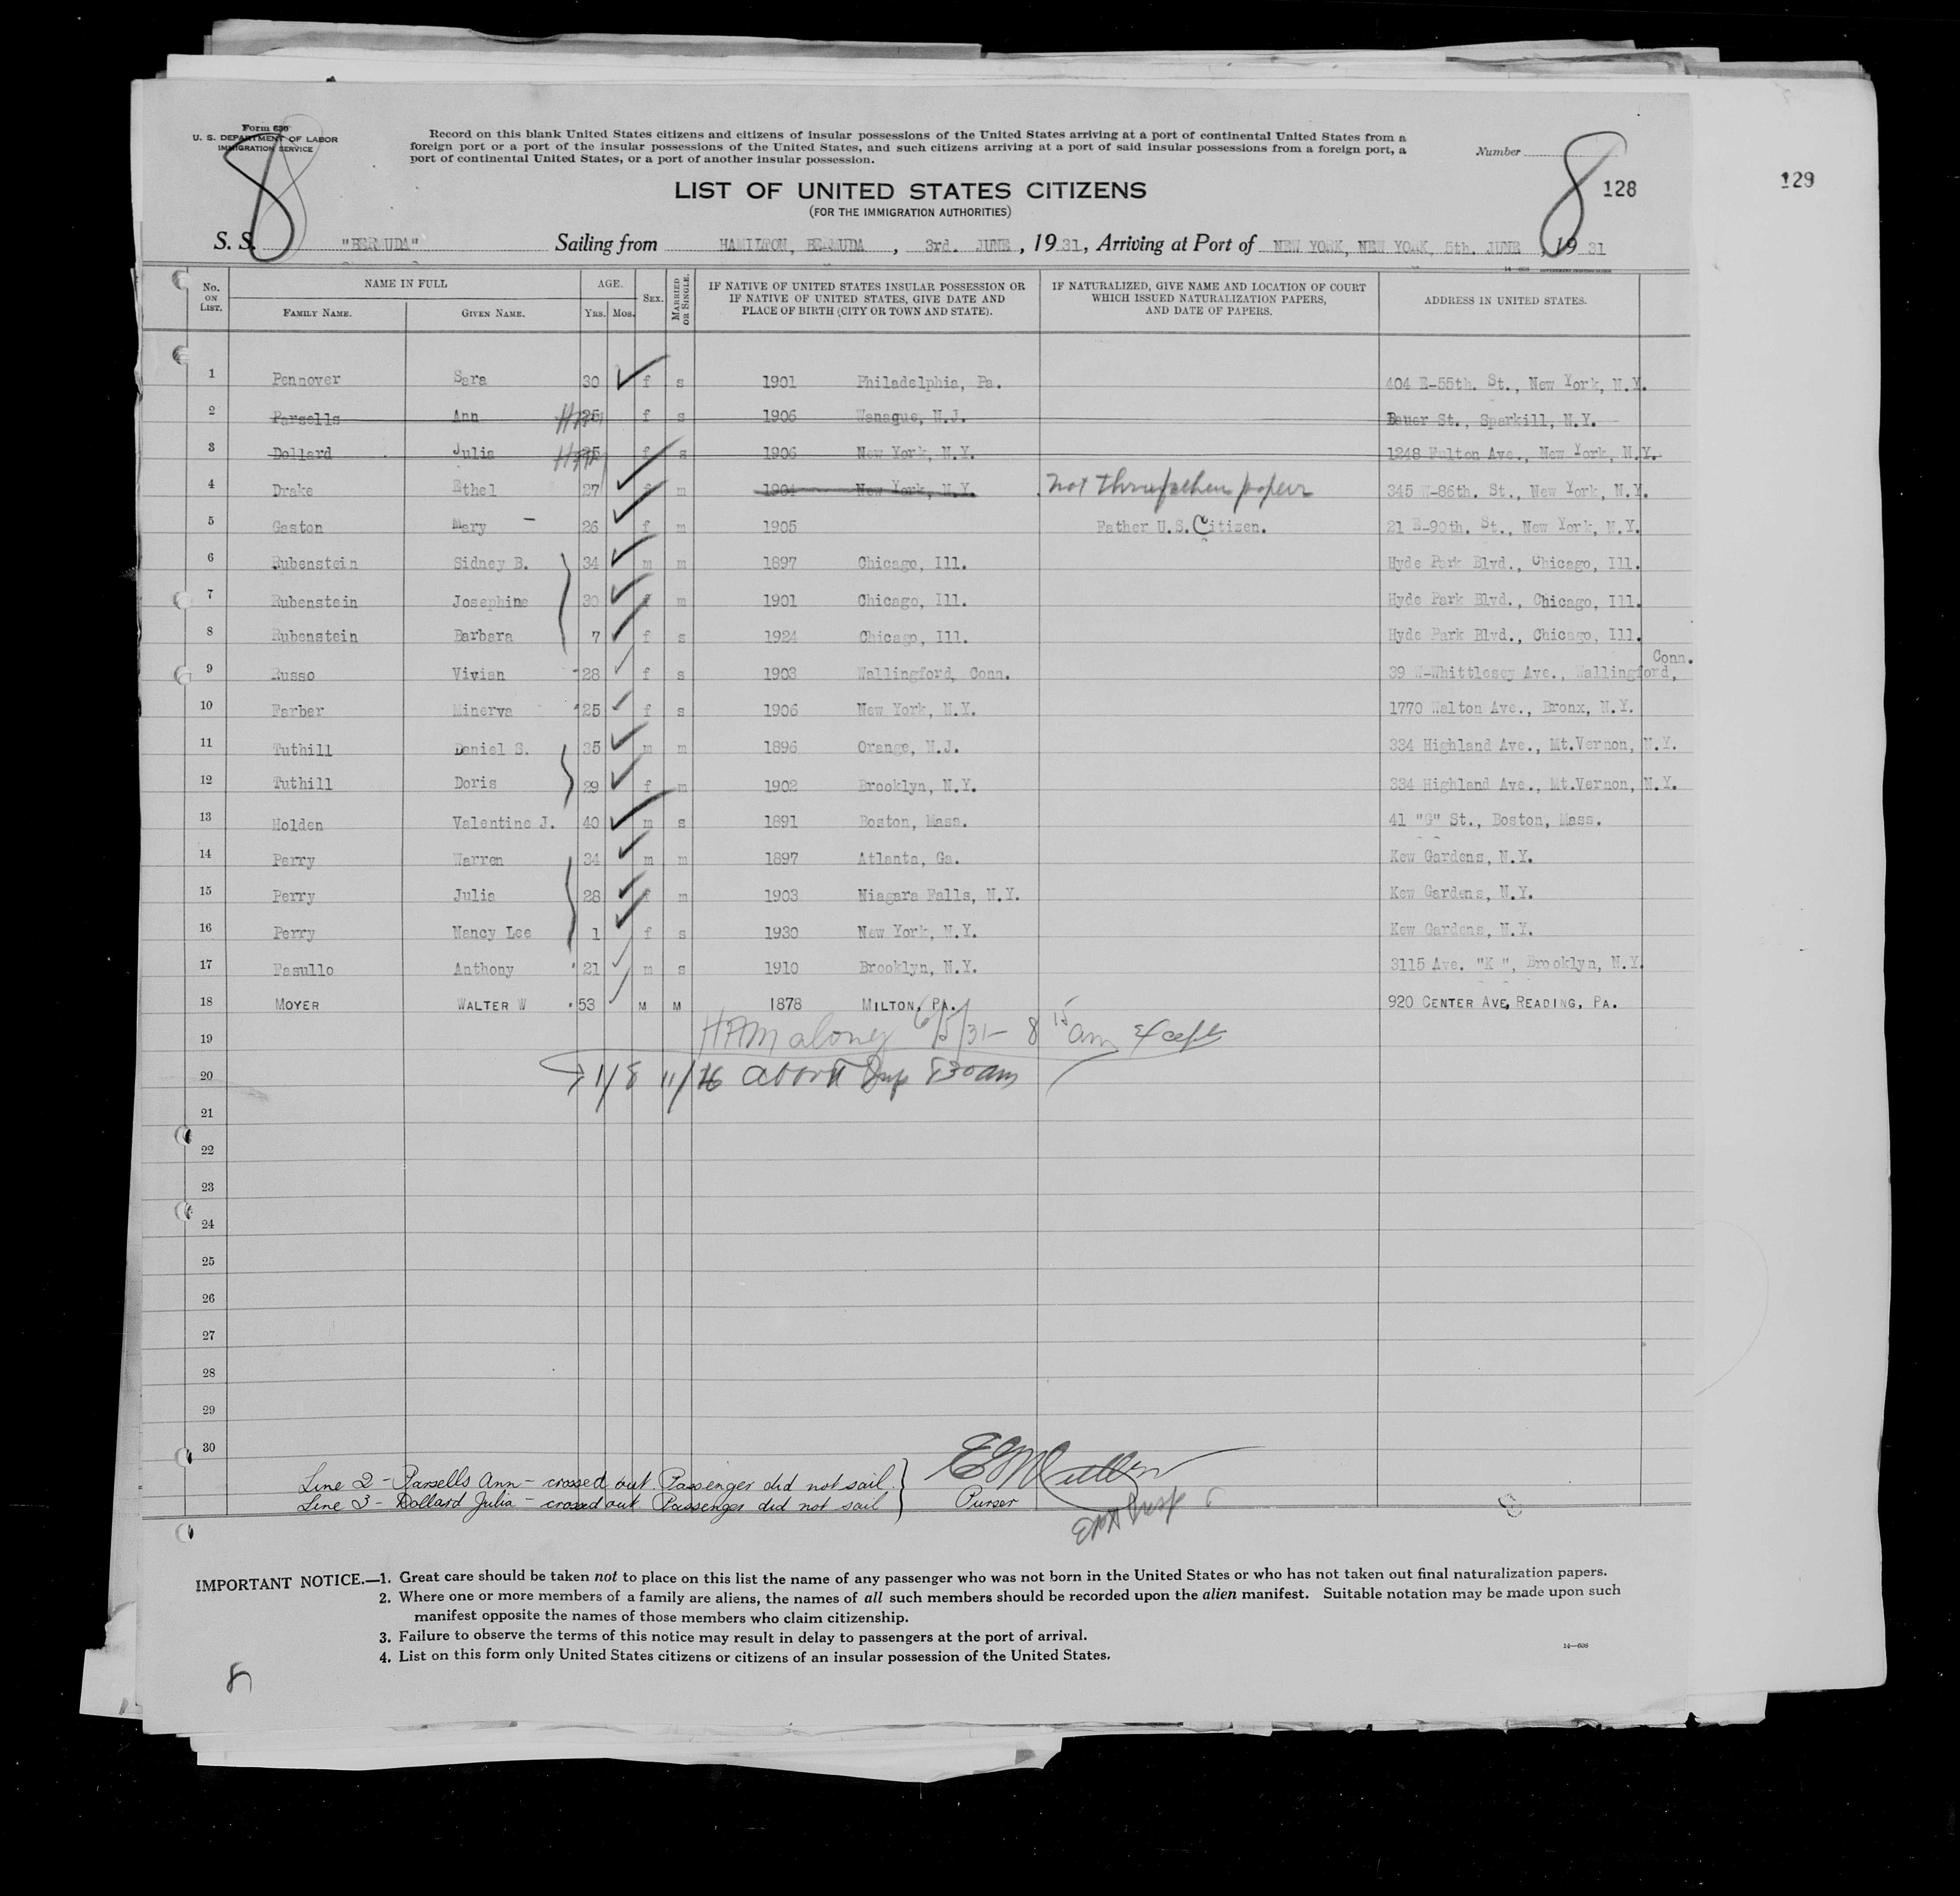 Form 630
U. S. DEPARTMENT OF LABOR
IMMIGRATION SERVICE
8
Record on this blank United States citizens and citizens of insular possessions of the United States arriving at a port of continental United States from a
foreign port or a port of the insular possessions of the United States, and such citizens arriving at a port of said insular possessions from a foreign port, a
port of continental United States, or a port of another insular possession.
Number
8
128
129
LIST OF UNITED STATES CITIZENS
(FOR THE IMMIGRATION AUTHORITIES)
S. S. "BERMUDA" Sailing from HAMILTON, BERMUDA, 3rd. JUNE, 1931, Arriving at Port of NEW YORK, NEW YORK, 5th. JUNE, 1931
No. ON LIST. NAME IN FULL AGE. SEX. MARRIED OR SINGLE. IF NATIVE OF UNITED STATES INSULAR POSSESSION OR IF NATIVE OF UNITED STATES, GIVE DATE AND PLACE OF BIRTH (CITY OR TOWN AND STATE). IF NATURALIZED, GIVE NAME AND LOCATION OF COURT WHICH ISSUED NATURALIZATION PAPERS, AND DATE OF PAPERS. ADDRESS IN UNITED STATES.
FAMILY NAME. GIVEN NAME. YRS. MOS.
1 Pennover Sara 30 f s 1901 Philadelphia, Pa. 404 E-55th. St., New York, N.Y.
2 Parsells Ann 25 f s 1906 Wanaque, N.J. Bauer St., Sparkill, N.Y.
3 Dollard Julia 25 f s 1906 New York, N.Y. 1248 Fulton Ave., New York, N.Y.
4 Drake Ethel 27 f m 1904 New York, N.Y. not papers 345 W-86th. St., New York, N.Y.
5 Gaston Mary 26 f m 1905 Father U.S.Citizen. 21 E-90th. St., New York, N.Y.
6 Rubenstein Sidney B. 34 m m 1897 Chicago, Ill. Hyde Park Blvd., Chicago, Ill.
7 Rubenstein Josephine 30 f m 1901 Chicago, Ill. Hyde Park Blvd., Chicago, Ill.
8 Rubenstein Barbara 7 f s 1924 Chicago, Ill. Hyde Park Blvd., Chicago, Ill.
9 Russo Vivian 28 f s 1903 Wallingford, Conn. 39 W-Whittlesey Ave., Wallingford, Conn.
10 Farber Minerva 25 f s 1906 New York, N.Y. 1770 Walton Ave., Bronx, N.Y.
11 Tuthill Daniel S. 35 m m 1896 Orange, N.J. 334 Highland Ave., Mt.Vernon, N.Y.
12 Tuthill Doris 29 f m 1902 Brooklyn, N.Y. 334 Highland Ave., Mt.Vernon, N.Y.
13 Holden Valentine J. 40 m s 1891 Boston, Mass. 41 "G" St., Boston, Mass.
14 Perry Warren 34 m m 1897 Atlanta, Ga. Kew Gardens, N.Y.
15 Perry Julia 28 f m 1903 Niagara Falls, N.Y. Kew Gardens, N.Y.
16 Perry Nancy Lee 1 f s 1930 New York, N.Y. Kew Gardens, N.Y.
17 Fasullo Anthony 21 m s 1910 Brooklyn, N.Y. 3115 Ave. "K", Brooklyn, N.Y.
18 MOYER WALTER W 53 M M 1878 MILTON, PA. 920 CENTER AVE, READING, PA.
19 6/5/31 - 8 15 am Except
20 1/8 11/16 above Insp 830am
21
22
23
24
25
26
27
28
29
30
Line 2 - Parsells Ann - crossed out. Passenger did not sail.
Line 3 - Dollard Julia - crossed out Passenger did not sail
Purser
IMPORTANT NOTICE.—1. Great care should be taken not to place on this list the name of any passenger who was not born in the United States or who has not taken out final naturalization papers.
2. Where one or more members of a family are aliens, the names of all such members should be recorded upon the alien manifest. Suitable notation may be made upon such
manifest opposite the names of those members who claim citizenship.
3. Failure to observe the terms of this notice may result in delay to passengers at the port of arrival.
4. List on this form only United States citizens or citizens of an insular possession of the United States.
14—608
8